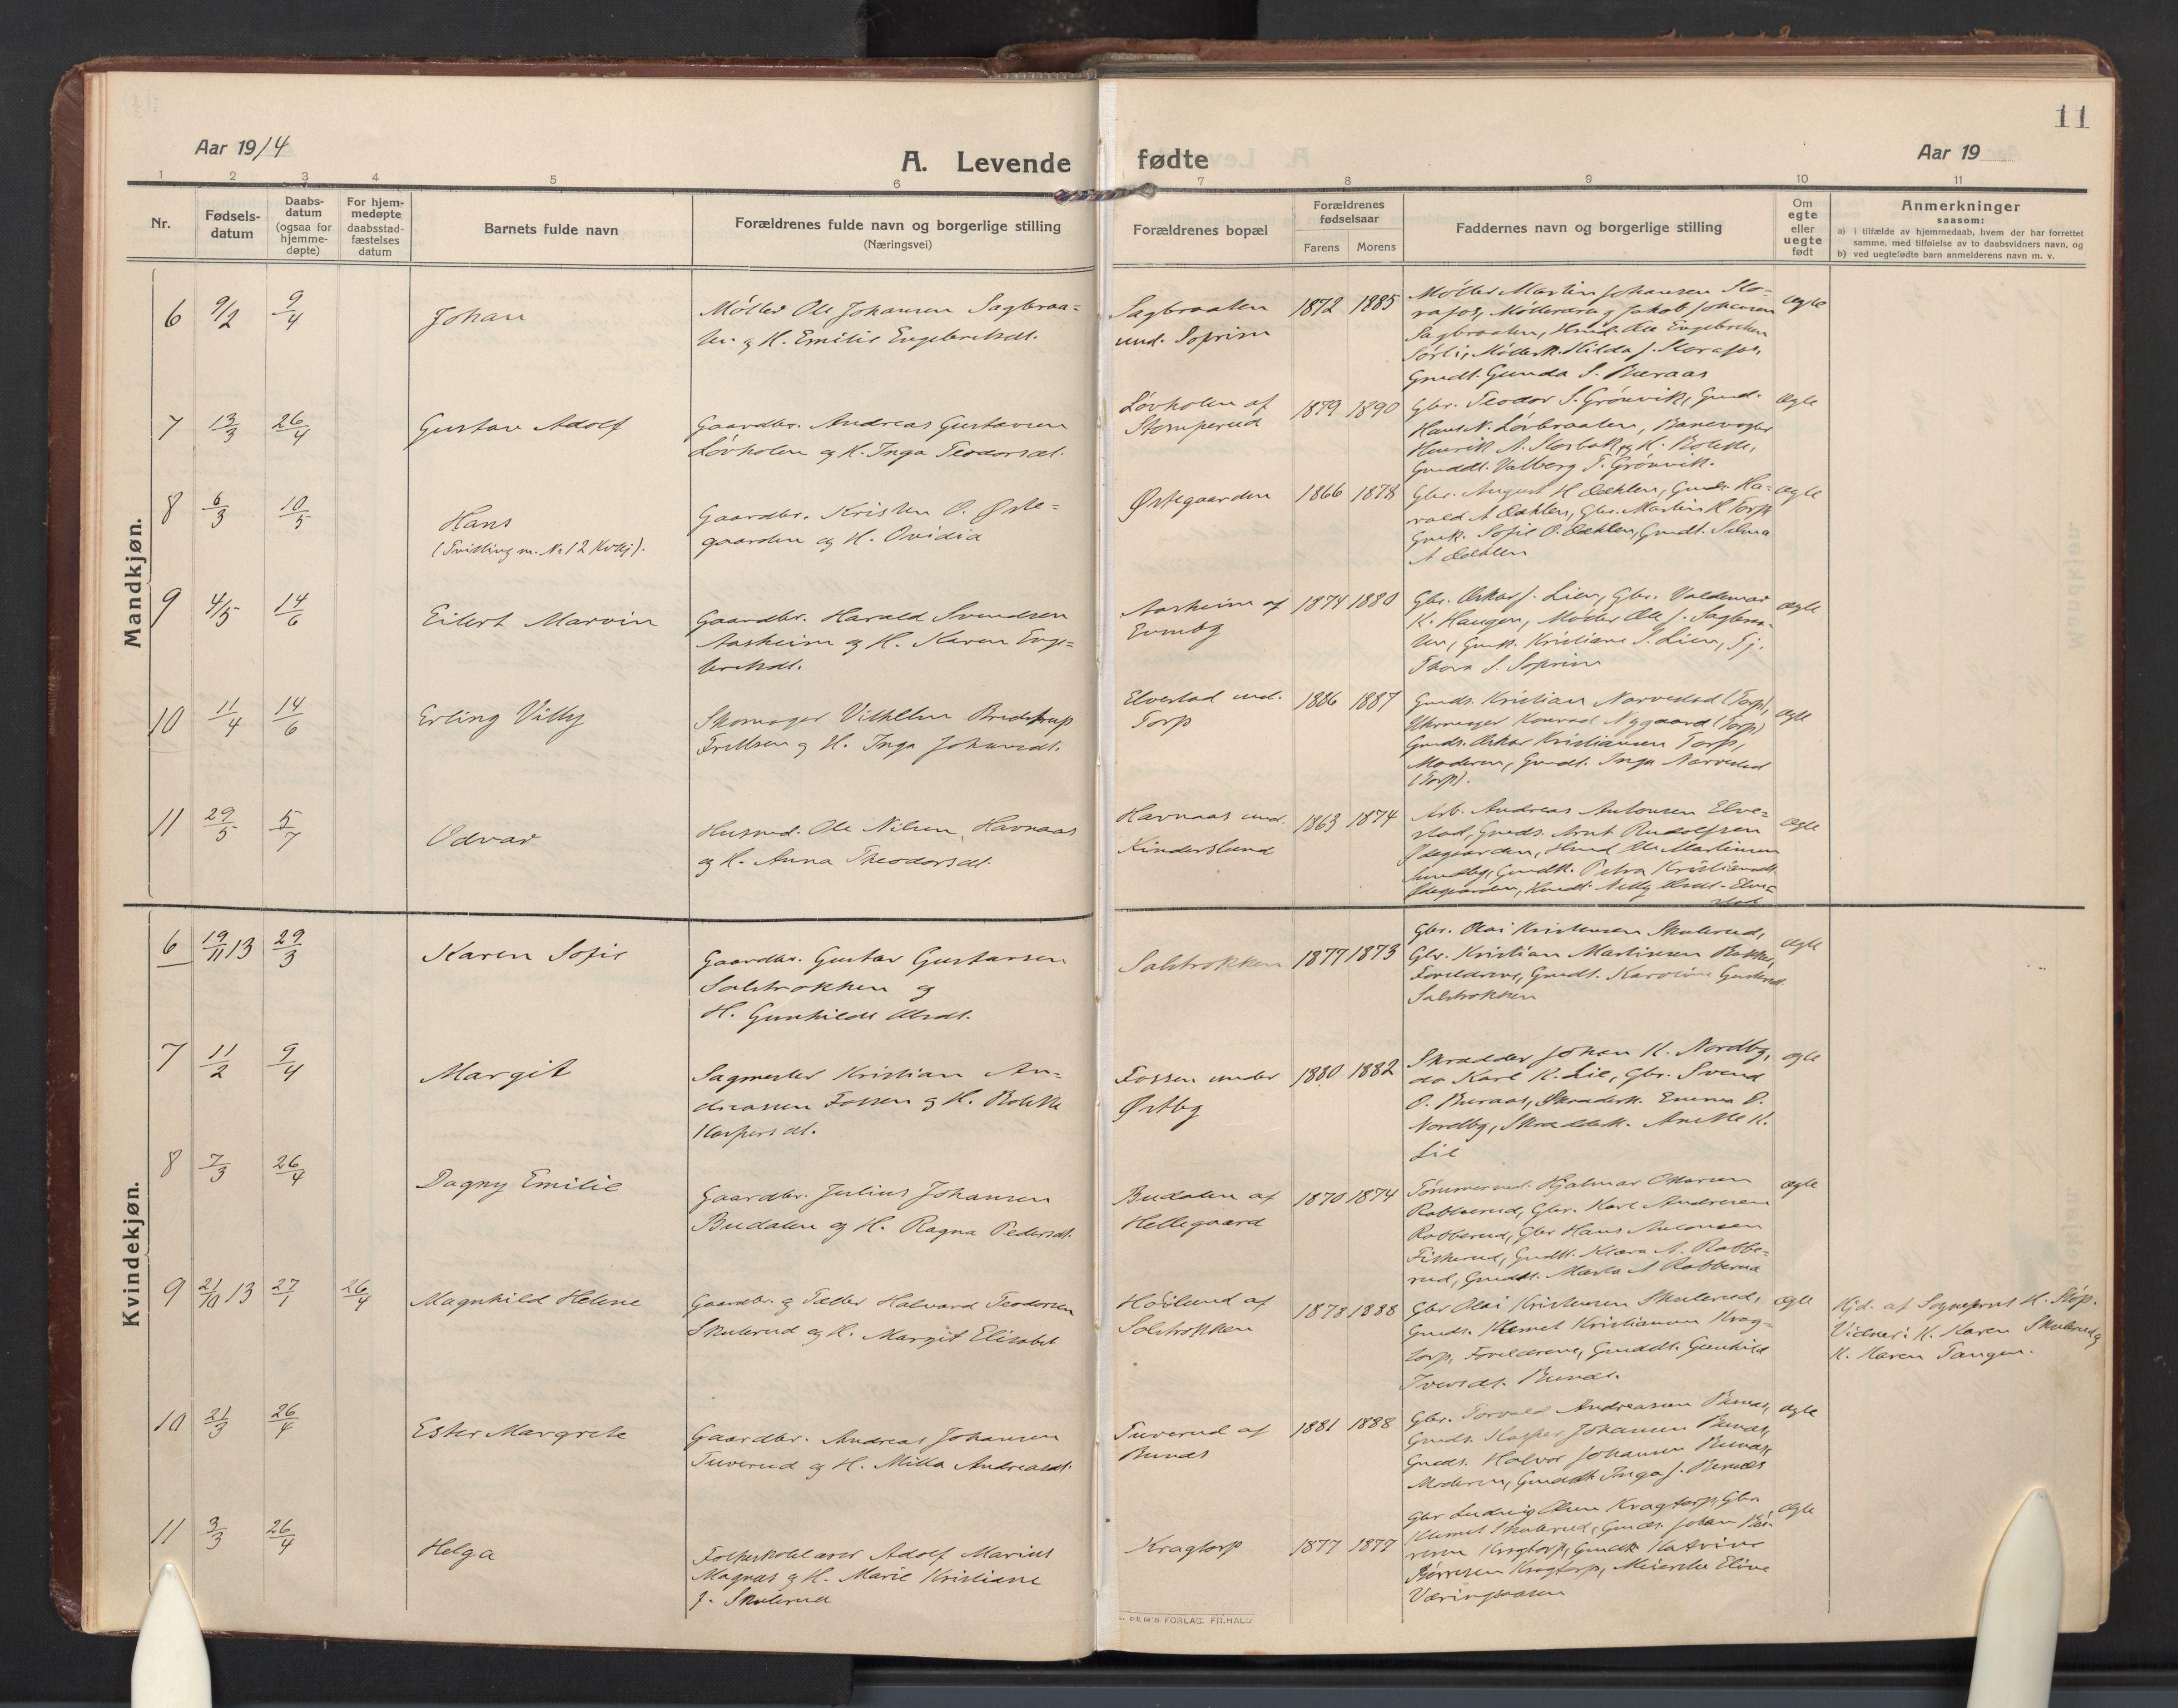 11
Aar 1914
A. Levende
fødte
Aar 19
1 2 3 4 5 6 7 8 9 10 11
Nr.
Fødsels-
datum
Daabs-
datum
(ogsaa for
hjemme-
døpte)
For hjem-
medøpte
daabsstad-
fæstelses
datum
Barnets fulde navn
Forældrenes fulde navn og borgerlige stilling
(Næringsvei)
Forældrenes bopæl
Forældrenes
fødselsaar
Farens Morens
Faddernes navn og borgerlige stilling
Om
egte
eller
uegte
født
Anmerkninger
saasom:
a) i tilfælde av hjemmedaab, hvem der har forrettet
samme, med tilføielse av to daabsvidners navn, og
b) ved uegtefødte barn anmelderens navn m. v.
Mandkjøn.
6 9/2 9/4
Johan
Møller Ole Johansen Sagbraa=
ten og H. Emilie Engebretsdt.
Sagbraaten
und. Soprim
1872 1885
Møller Martin Johansen Sto-
rafos, Møllerdreng Jakob Johansen
Sagbraaten, Husmd. Ole Engebretsen
Sørli, Møllerk. Hilda J. Storafos,
Gmdt. Gunda S. Buraas
ægte
7 13/3 26/4
Gustav Adolf
Gaardbr. Andreas Gustavsen
Løvholen og H. Inga Teodorsdt.
Løvholen af
Stomperud
1879 1890
Gbr. Teodor S. Grønvik, Gmd.
Hans N. Løvbraaten, Banevogter
Henrik A. Storbak og H. Bolette,
Gmddt. Valborg T. Grønvik.
ægte
8 6/3 10/5
Hans
(Tvilling m. Nr 12 Kvkj).
Gaardbr. Kristen O. Øste=
gaarden og H. Ovidia
Østegaarden
1866 1878
Gbr. August H. Dæhlen, Gmds. Ha-
rald A Dæhlen, Gbr. Martin H Torp
Gmk. Sofie O. Dæhlen, Gmdt. Selma
A Dæhlen
ægte
9 4/5 14/6
Eilert Marvin
Gaardbr. Harald Svendsen
Aasheim og H. Karen Enge=
bretsdt.
Aasheim af
Evenby
1874 1880
Gbr. Oskar J. Lien, Gbr. Valdemar
K. Haugen, Møller Ole J. Sagbraa-
ten, Gmk. Kristiane S. Lien, Pj.
Thora S. Soprim
ægte
10 11/4 14/6
Erling Villy
Skomager Vilhelm Bredstrup
Frellsen og H. Inga Johansdt.
Elvestad und.
Torp
1886 1887
Gmds. Kristian Narvestad (Torp),
Skomager Konrad Nygaard (Torp)
Gmds. Oskar Kristiansen Torp,
Moderen, Gmdt. Inga Narvestad
(Torp).
ægte
11 29/5 5/7
Odvar
Husmd. Ole Nilsen Havnaas
og H. Anna Theodorsdt.
Havnaas und.
Kinderslund
1863 1874
Arb. Andreas Antonsen Elve-
stad, Gmds. Arnt Rudolfsen
Ødegaarden, Hmd Ole Martinsen
Sundby, Gmdk. Petra Kristiansdt.
Ødegaarden, Hmdt. Nelly Olsdt. Elve-
stad
ægte
Kvindekjøn.
6 19/11 13 29/3
Karen Sofie
Gaardbr. Gustav Gustavsen
Solstrokken og
H. Gunhilde Olsdt.
Solstrokken
1877 1873
Gbr. Olai Kristensen Skulerud,
Gbr. Kristian Martinsen Bakke,
Forældrene, Gmdt. Karoline Gustavsdt.
Solstrokken
ægte
7 11/2 9/4
Margit
Sagmester Kristian An-
dreassen Fossen og H. Bolette
Kaspersdt.
Fossen under
Østby
1880 1882
Skrædder Johan K. Nordby,
do Karl K. Lie, Gbr. Svend
O. Buraas, Skrædderk. Emma P.
Nordby, Skrædderk. Anette K.
Lie
ægte
8 7/3 26/4
Dagny Emilie
Gaardbr. Julius Johansen
Budalen og H. Ragna Pedersdt.
Budalen af
Hellegaard
1870 1874
Tømmermd. Hjalmar Oskarsen
Robberud, Gbr. Karl Andresen
Robberud, Gbr Hans Antonsen
Fiskerud, Gmdk. Klara A. Robbe-
rud, Gmddt. Marta A Robberud
ægte
9 21/10 13 27/1 26/4
Magnhild Helene
Gaardbr. og Tælter Halvard Teodorsen
Skulerud og H. Margit Elisabet
Høilund af
Solstrokken
1878 1888
Gbr Olai Kristensen Skulerud,
Gmds. Klemet Kristiansen Krag-
torp, Forældrene, Gmddt. Gunhild
Iversdt. Bunæs.
ægte
Hjd. af Sogneprest H. Skøp.
Vidner: K. Karen Skulerud og
K. Karen Tangen.
10 21/3 26/4
Ester Margrete
Gaardbr. Andreas Johansen
Tuverud og H. Milla Andreasdt.
Tuverud af
Bunæs
1881 1888
Gbr. Torvald Andreassen Bunæs,
Gmds. Kasper Johansen Bunæs,
Gmds. Halvor Johansen Bunæs,
Moderen, Gmddt. Inga J. Bunæs
ægte
11 3/3 26/4
Helga
Folkeskolelærer Adolf Marius
Magnæs og H. Marie Kristiane
J. Skulerud
Kragtorp
1877 1877
Gbr Ludvig Olsen Kragtorp, Gbr
Klemet Skulerud, Gmds. Johan Bør-
resen Kragtorp, Gmdk Katrine
Børresen Kragtorp, Meierske Eline
Væringsaasen
ægte
SEM'S FORLAG. FR.HALD